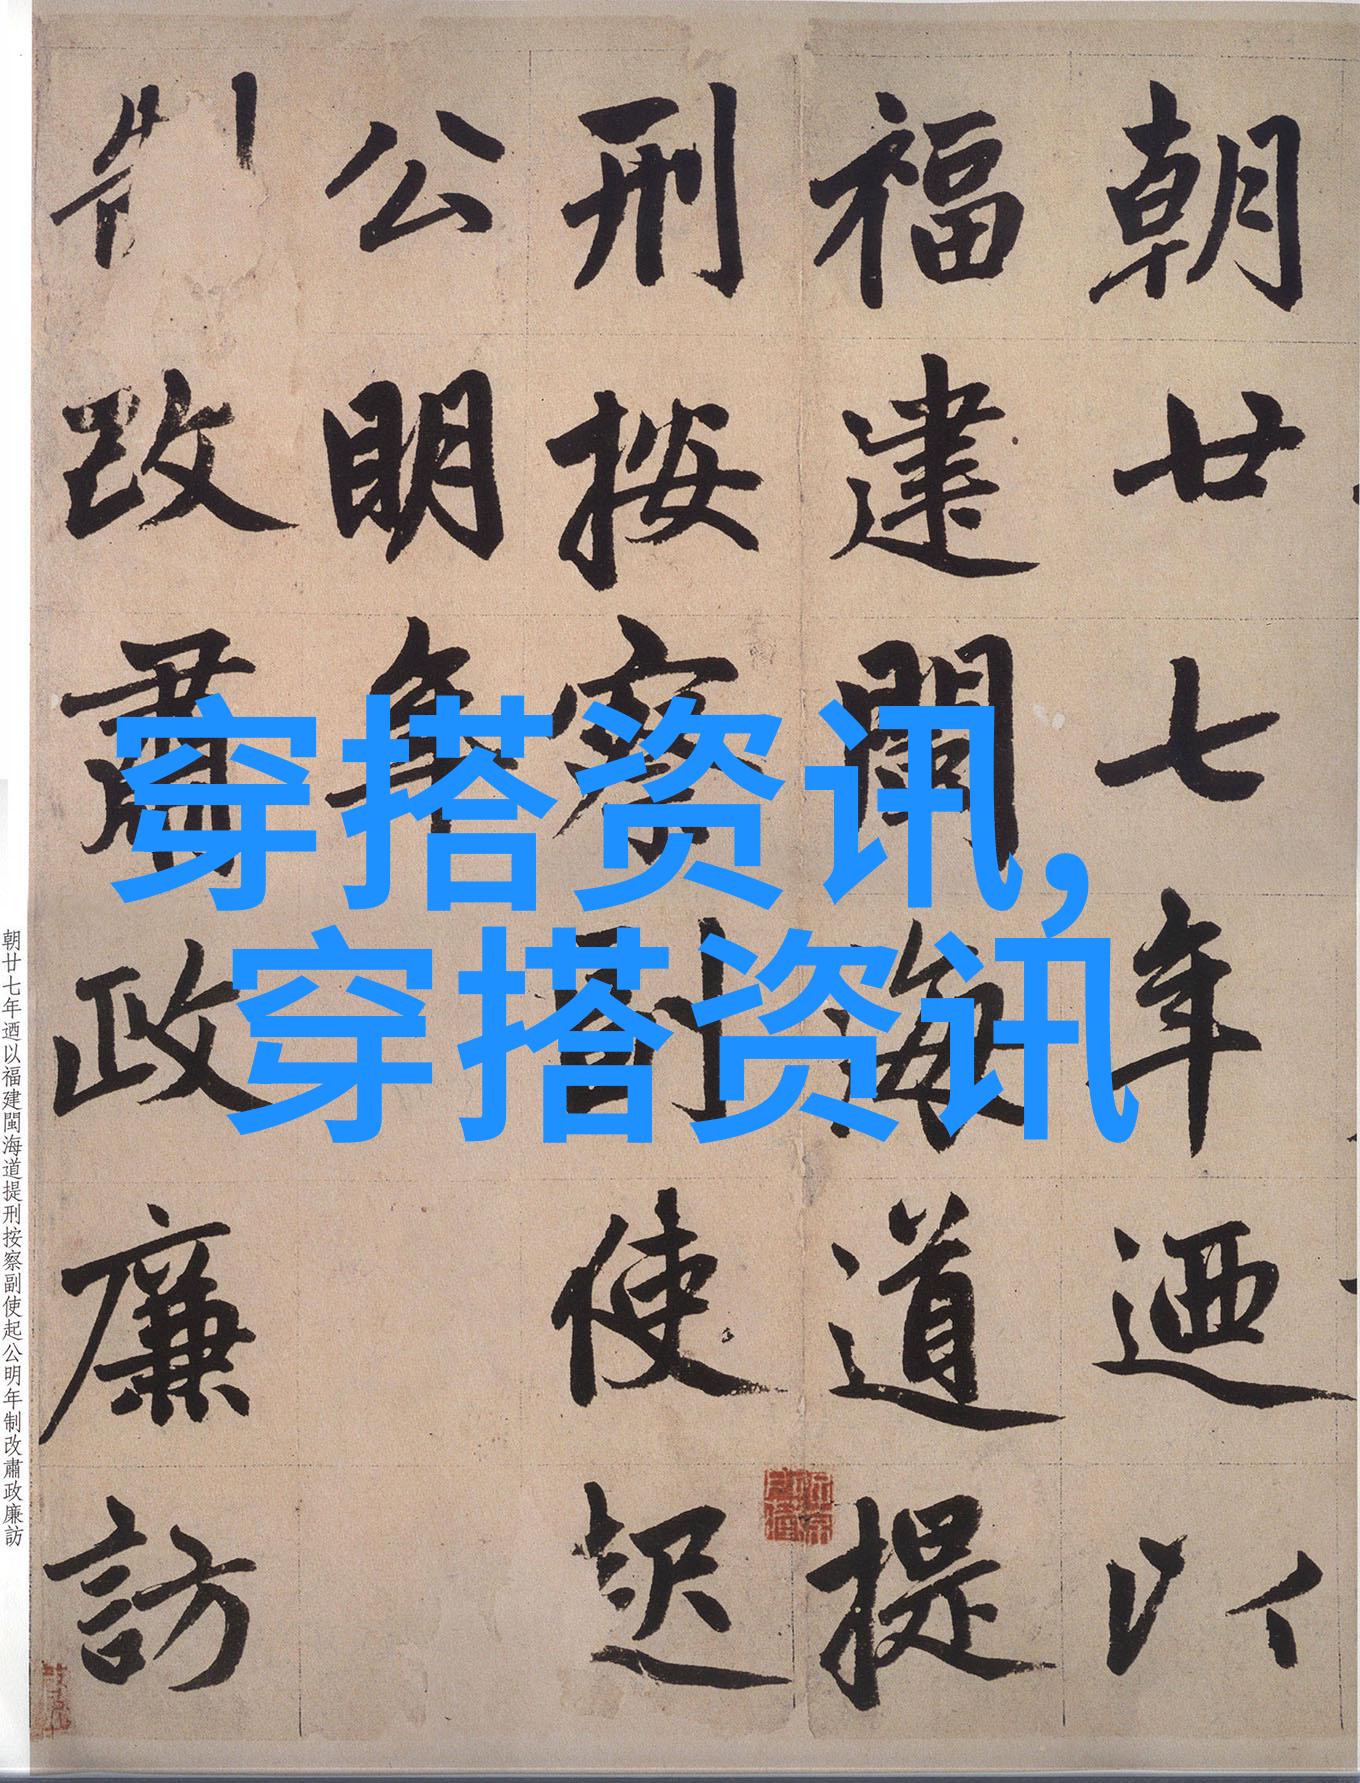 朝廿七年迺以
福建閩海道提
刑按察副使起
公明年
制改肅政廉訪
穿搭资讯,
穿搭资讯
朝廿七年迺以福建閩海道提刑按察副使起公明年制改肅政廉訪